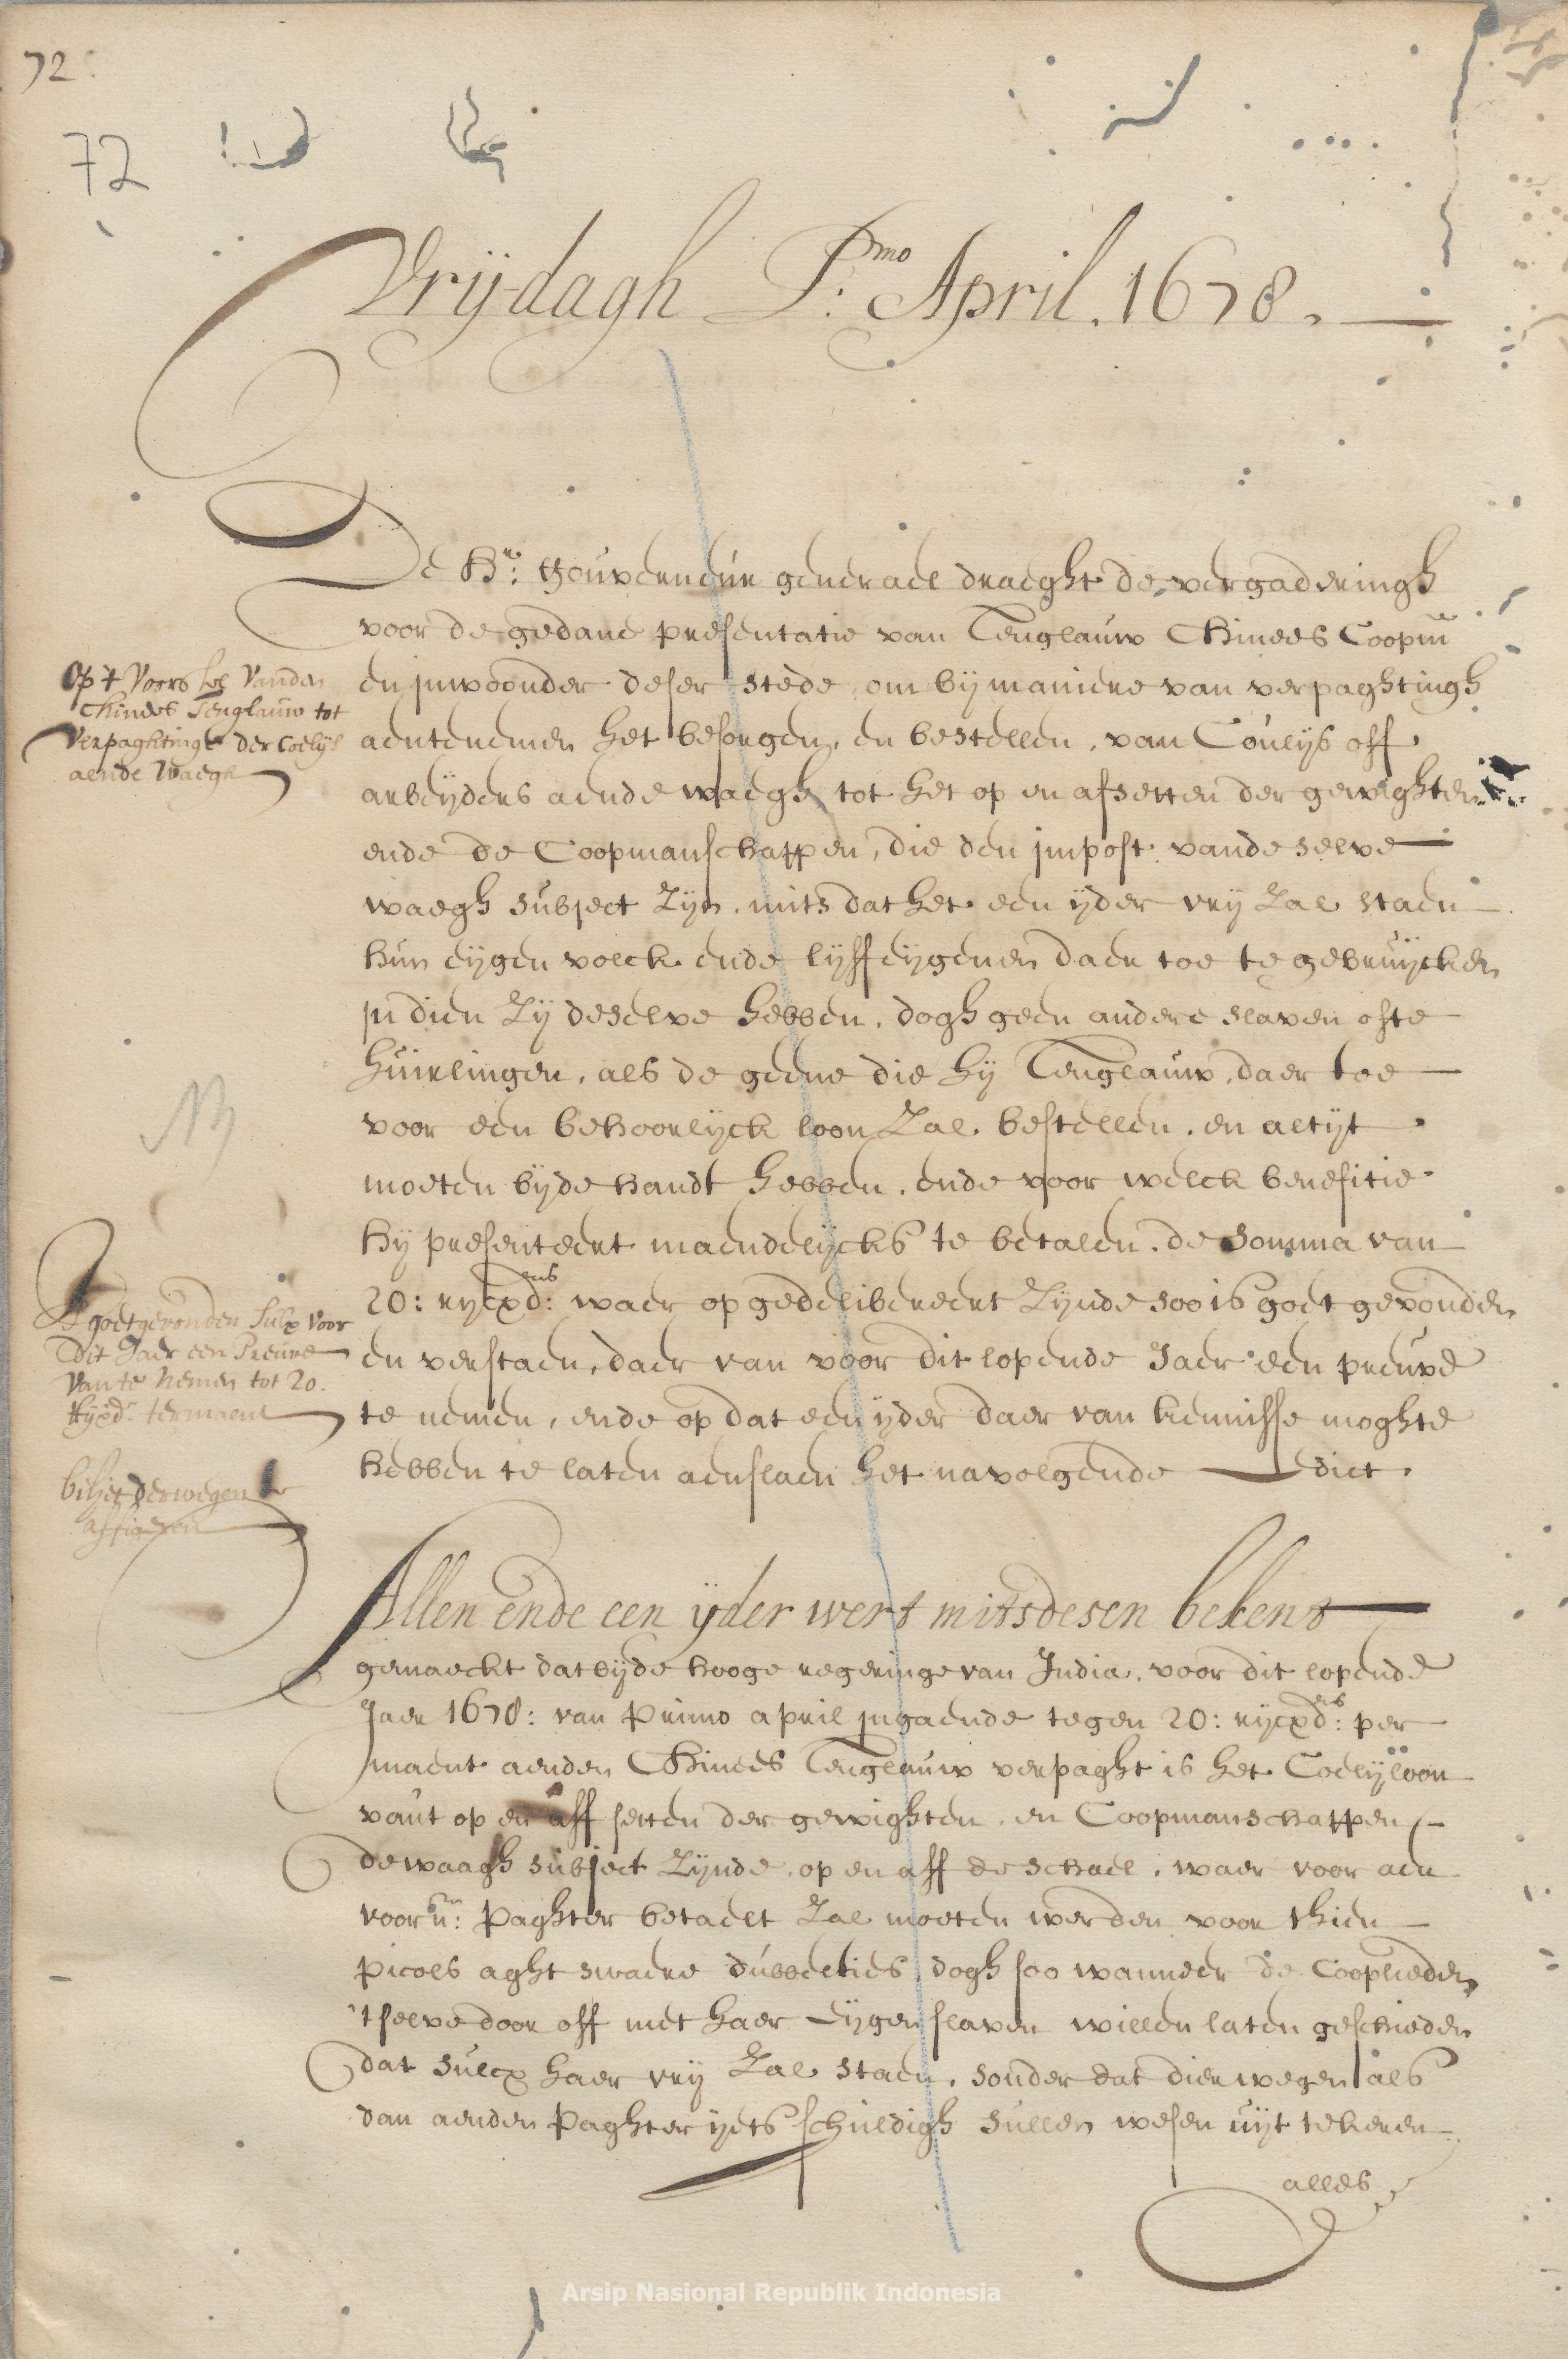 72
72
Vrijdagh P:mo April. 1678.
De Hr: Gouverneur generael draeght de vergaderingh
voor de gedane presentatie van Tenglauw Chinees Coopm
en inwoonder deser stede, om bij maniere van verpaghtingh
aentenemen het besorgen, en bestellen, van Coulijs off
arbeijders aende waegh, tot het op en afsetten der gewighten
ende de Coopmanschappen, die den impost vande selve
waegh subject zijn, mits dat het een ijder vrij zal staen
hun eijgen volck ende lijffeijgenen daer toe te gebruijcken
in dien zij deselve hebben, dogh geen andere slaven ofte
huirlingen, als de geene die hij Tenglauw, daer toe
voor een behoorlijck loon zal bestellen, en altijt
moeten bijde handt hebben, ende voor welck benefitie
hij presenteert maendelijcks te betalen, de somma van
20: rijcxd:ens waer op gedelibereert zijnde soo is goet gevonden
en verstaen, daer van voor dit lopende Jaer een preuve
te nemen, ende op dat een ijder daer van kennisse moghte
hebben te laten aenslaen het navolgende Edict.
Op 't voorstel vanden
Chinees Tenglauw tot
verpaghtinge der Coelijs
aende waegh
Is goetgevonden sulx voor
dit Jaer een Preuve
van te nemen tot 20.
Rijxd:s termaent
biljet derwegen te
affigeren
Allen ende een ijder wert mitsdesen bekent
gemaeckt dat bijde hooge regeringe van India, voor dit lopende
Jaer 1678: van Primo april ingaende tegen 20: rijcxd:ens per
maent aenden Chinees Tenglauw verpaght is het Coelijloon
van't op en aff setten der gewighten, en Coopmanschappen
de waagh subject zijnde, op en aff de schael, waer voor aen
voorn: Paghter betaelt zal moeten werden voor thien
picols aght swaere dubbelties, dogh soo wanneer de Cooplieden
't selve door off met haer eijgen slaven willen laten geschieden
dat sulcx haer vrij zal staen, sonder dat dierwegen als
dan aenden Paghter ijets schuldigh sullen wesen uijt tekeren
alles
Arsip Nasional Republik Indonesia